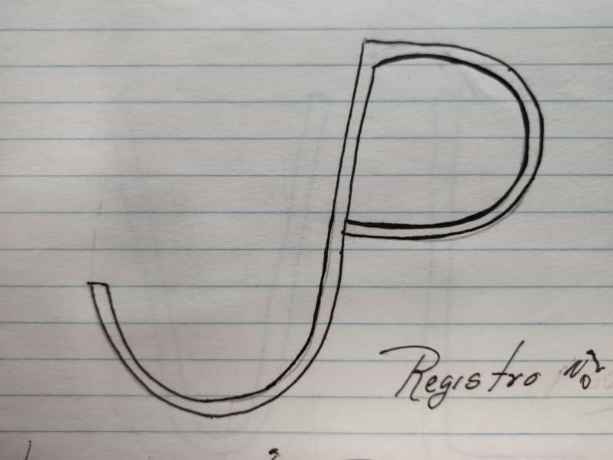 JP
Registro Nº